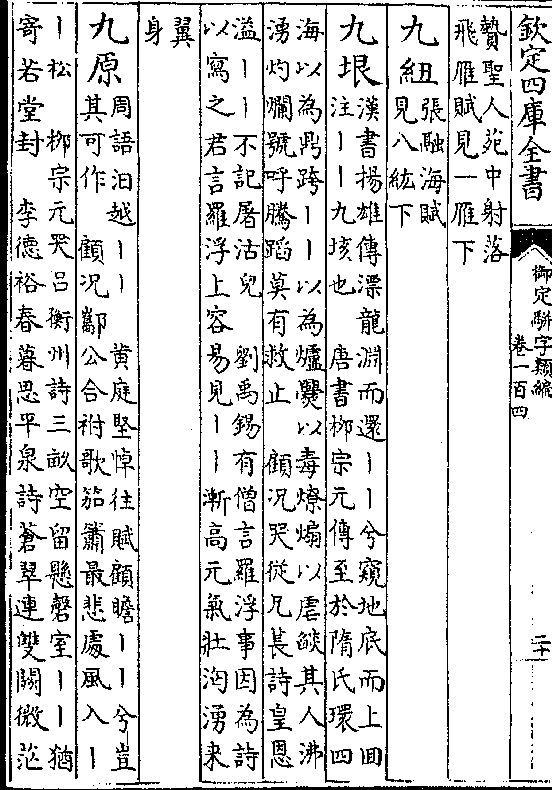 欽定四庫全書
御定駢字類編
卷一百四
二十
贄聖人苑中射落
飛雁賦見一雁下
九紐
張融海賦
見八紘下
九垠
漢書揚雄傳漂龍淵而還丨丨兮窺地底而上回
注丨丨九垓也 唐書柳宗元傳至於隋氏環四
海以為鼎跨丨丨以為爐爨以毒燎煽以虐燄其人沸
湧灼爛號呼騰蹈莫有救止 顧況哭從兄萇詩皇恩
溢丨丨不記屠沽兒 劉禹錫有僧言羅浮事因為詩
以寫之君言羅浮上容易見丨丨漸高元氣壯洶湧來
翼
身
九原
周語汩越丨丨 黄庭堅悼往賦顧瞻丨丨兮豈
其可作 顧況酅公合祔歌笳簫最悲處風入丨
丨松 柳宗元哭呂衡州詩三畝空留懸磬室丨丨猶
寄若堂封 李德裕春暮思平泉詩蒼翠連雙闕微茫